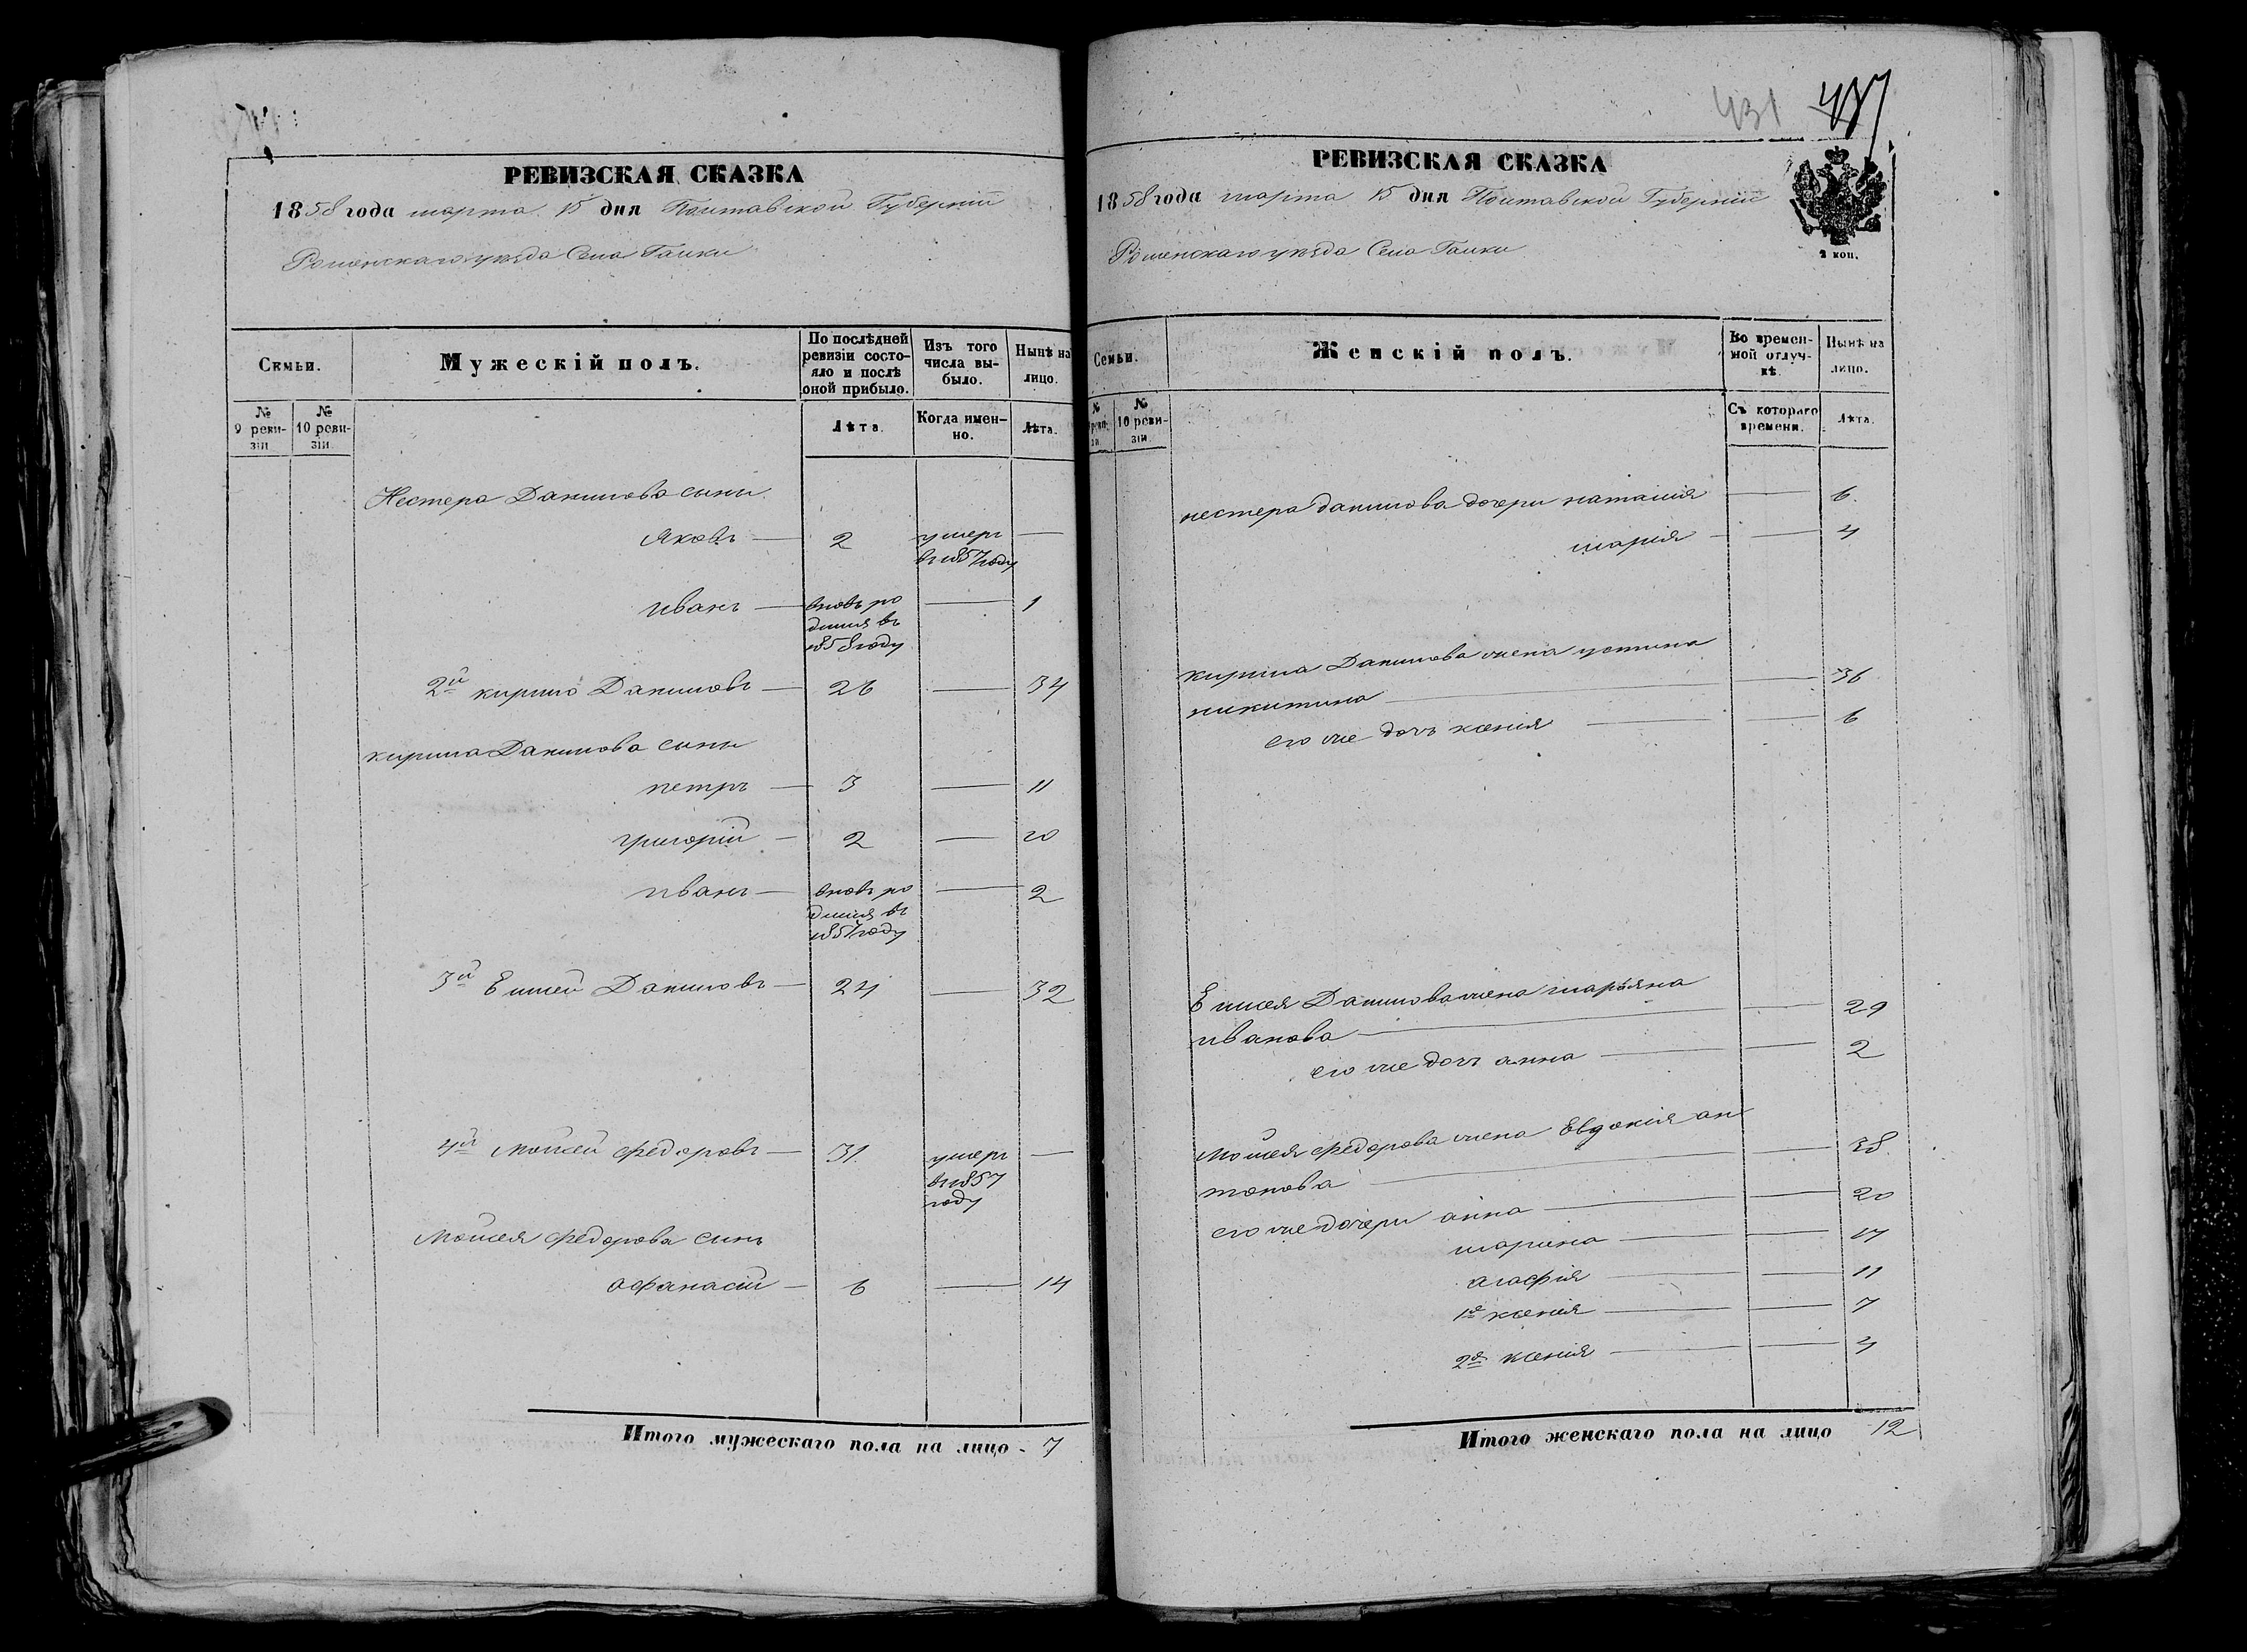 РЕВИЗСКАЯ СКАЗКА
1858 года марта 15 дня Полтавской Губерніи
Роменскаго уезда Села Галки
Семьи.
Мужескій полъ.
По послѣдней ревизіи состояло и послѣ оной прибыло.
Изъ того числа выбыло.
Нынѣ на лицо.
№ 9 ревизіи
№ 10 ревизіи.
Лѣта.
Когда именно.
Лѣта.
Нестера Данилова сыны
яковъ — 2 умеръ —
въ 1857 году
иванъ — вновь ро — 1
дился въ
1858 году
2й кирило Даниловъ — 26 — 34
кирила Данилова сыны
петръ — 3 — 11
григорій — 2 — 10
иванъ — вновь ро — 2
дился въ
1857 году
3й Елисей Даниловъ — 24 — 32
4й Мойсей Федоровъ — 31 умеръ —
въ 1857
году
Мойсея Федорова сынъ
афанасій — 6 — 14
Итого мужескаго пола на лицо - 7
431
РЕВИЗСКАЯ СКАЗКА
1858 года марта 15 дня Полтавской Губерніи
Роменскаго уезда Села Галки
2 коп.
Семьи.
Женскій полъ.
Во временной отлучкѣ.
Нынѣ на лицо.
№ 10 ревизіи.
Съ котораго времени.
Лѣта.
нестера данилова дочери наталія — 6.
марія — — 4
кирила Данилова жена устина
никитина — — 36
его же дочь ксенія — — 6
Елисея Данилова жена марьяна
иванова — — 29
его же дочь анна — — 2
Мойсея Федорова жена Евдокія ан
тонова — — 38
его же дочери анна — — 20
марина — — 17
агафія — — 11
1я ксенія — — 7
2я ксенія — — 4
Итого женскаго пола на лицо 12